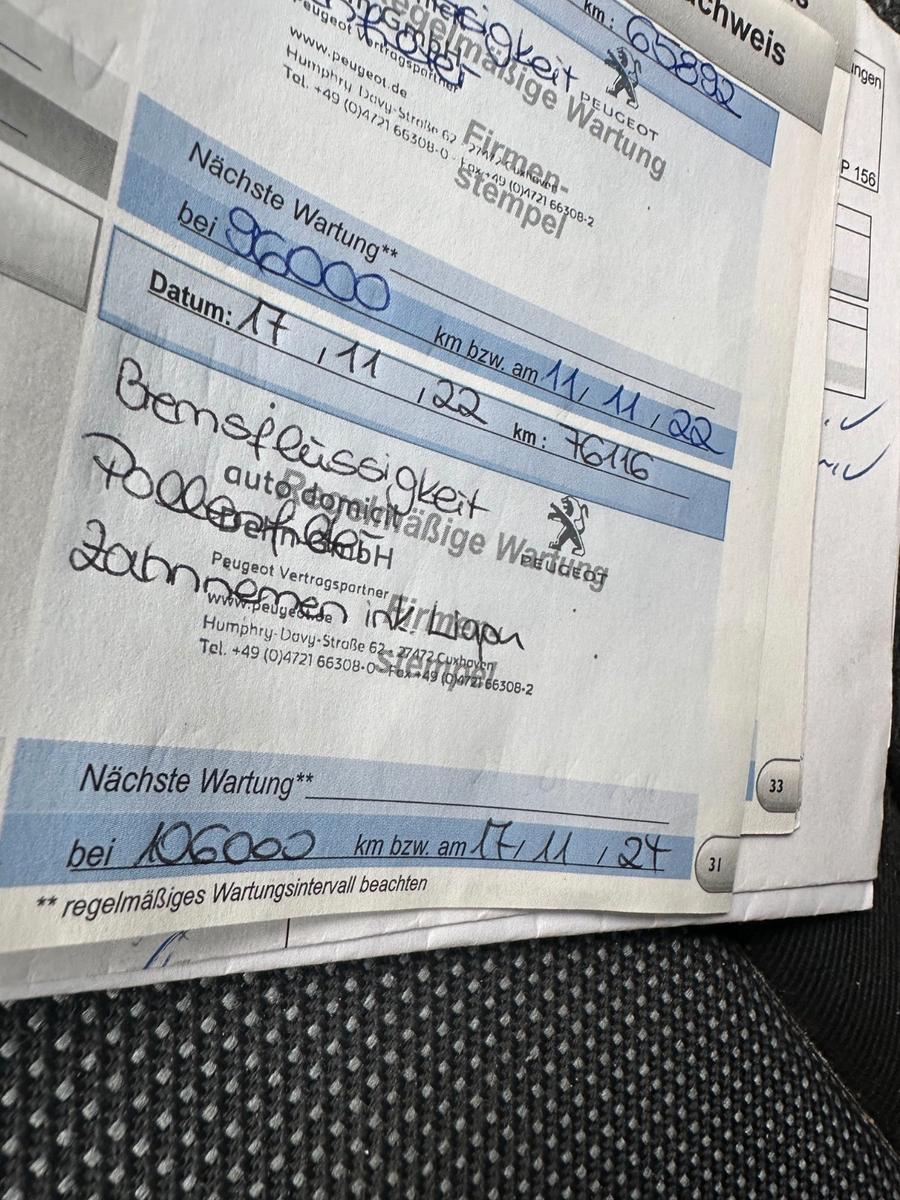 chweis
km : 65892
PEUGEOT
Regelmäßige Wartung
Peugeot Vertragspartner
www.peugeot.de
Humphry-Davy-Straße 62 · 27472 Cuxhaven
Tel. +49 (0)4721 66308-0 · Fax +49 (0)4721 66308-2
Firmen-
stempel
Nächste Wartung**
bei 96000 km bzw. am 11, 11, 22
Datum: 17, 11, 22 km : 76116
Bremsflüssigkeit
Pollenfilter
Zahnriemen ink.
auto domicil
Behn GmbH
Peugeot Vertragspartner
www.peugeot.de
Humphry-Davy-Straße 62 · 27472 Cuxhaven
Tel. +49 (0)4721 66308-0 · Fax +49 (0)4721 66308-2
Regelmäßige Wartung
PEUGEOT
Firmen-
stempel
Nächste Wartung**
bei 106000 km bzw. am 17, 11, 24
** regelmäßiges Wartungsintervall beachten
31
33
ngen
P 156